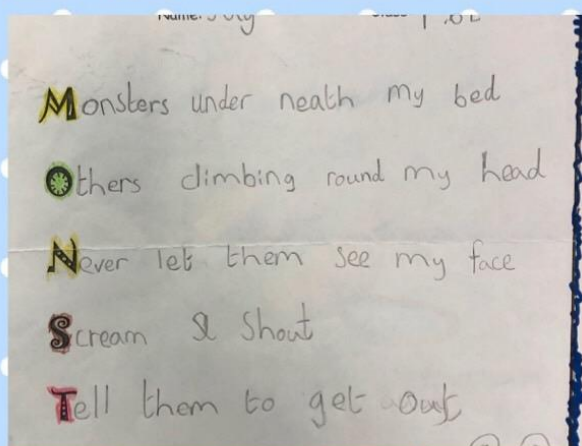 Name:
Monsters under neath my bed
Others climbing round my head
Never let them see my face
Scream & Shout
Tell them to get out